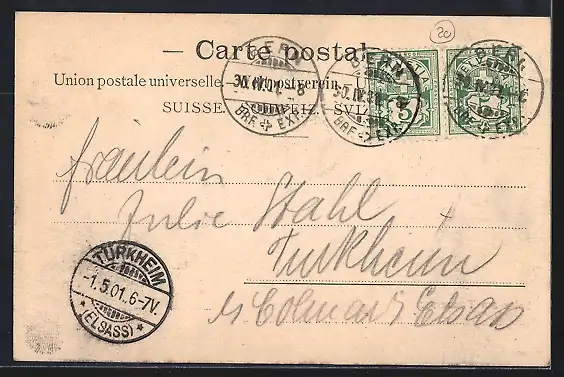 20
— Carte postale.
Union postale universelle. — Weltpostverein.
SUISSE. SCHWEIZ. SVIZZERA.
BERN
30.IV.01.
BRF. EXP.
BERN
BRF. EXP.
BERN
5
Fräulein
Julie Stahl
Turkheim
b/ Colmar Elsass
TÜRKHEIM
-1.5.01.6-7V.
* (ELSASS) *